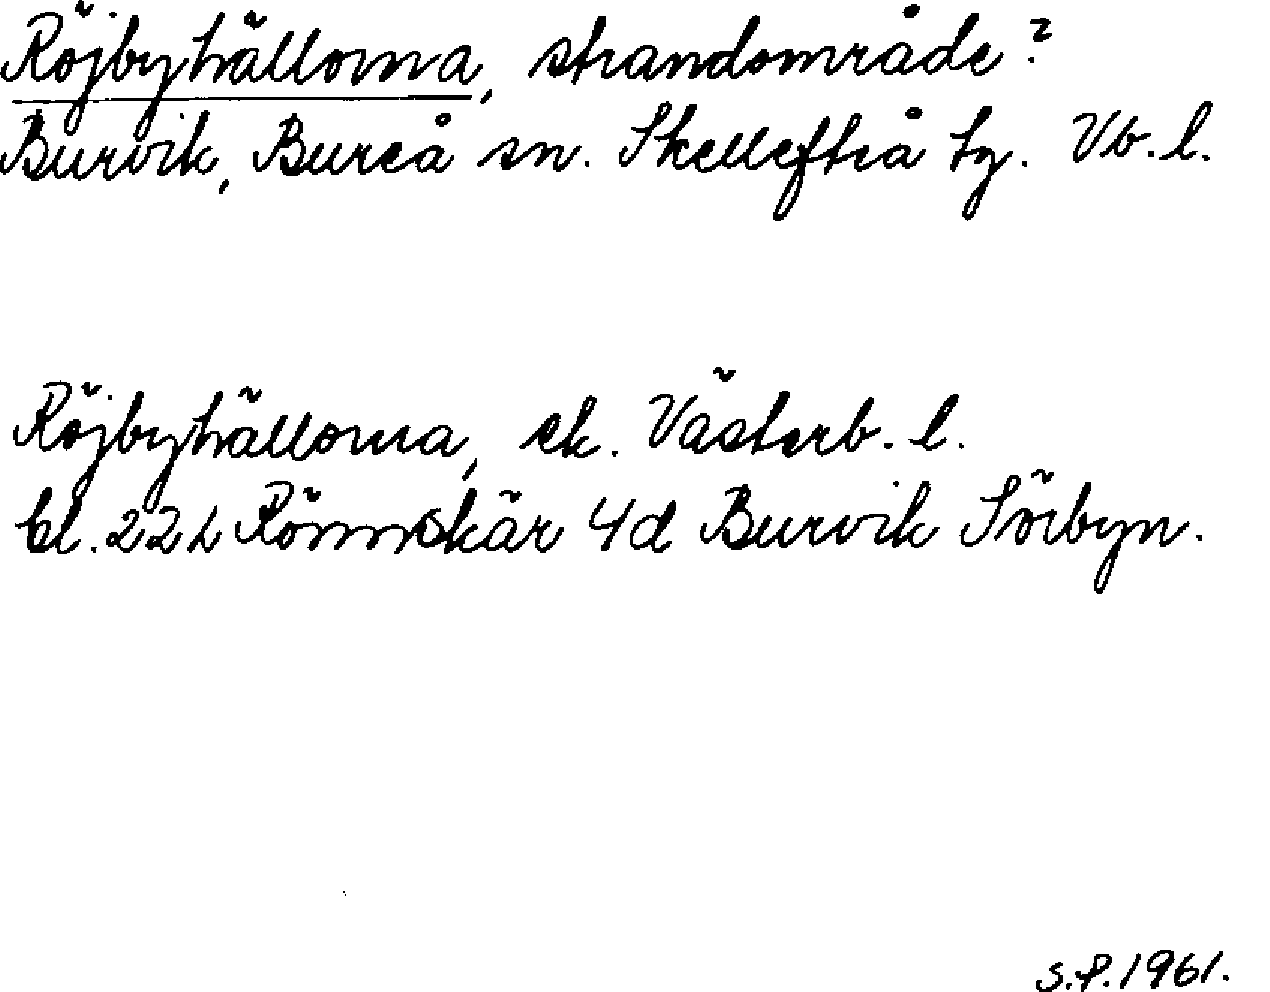 Röjbyhällorna, strandområde?
Burvik, Bureå sn. Skellefteå tg. Vb. l.
Röjbyhällorna, ek. Västerb. l.
bl. 22 L Rönnskär 4d Burvik Sörbyn.
S.P. 1961.